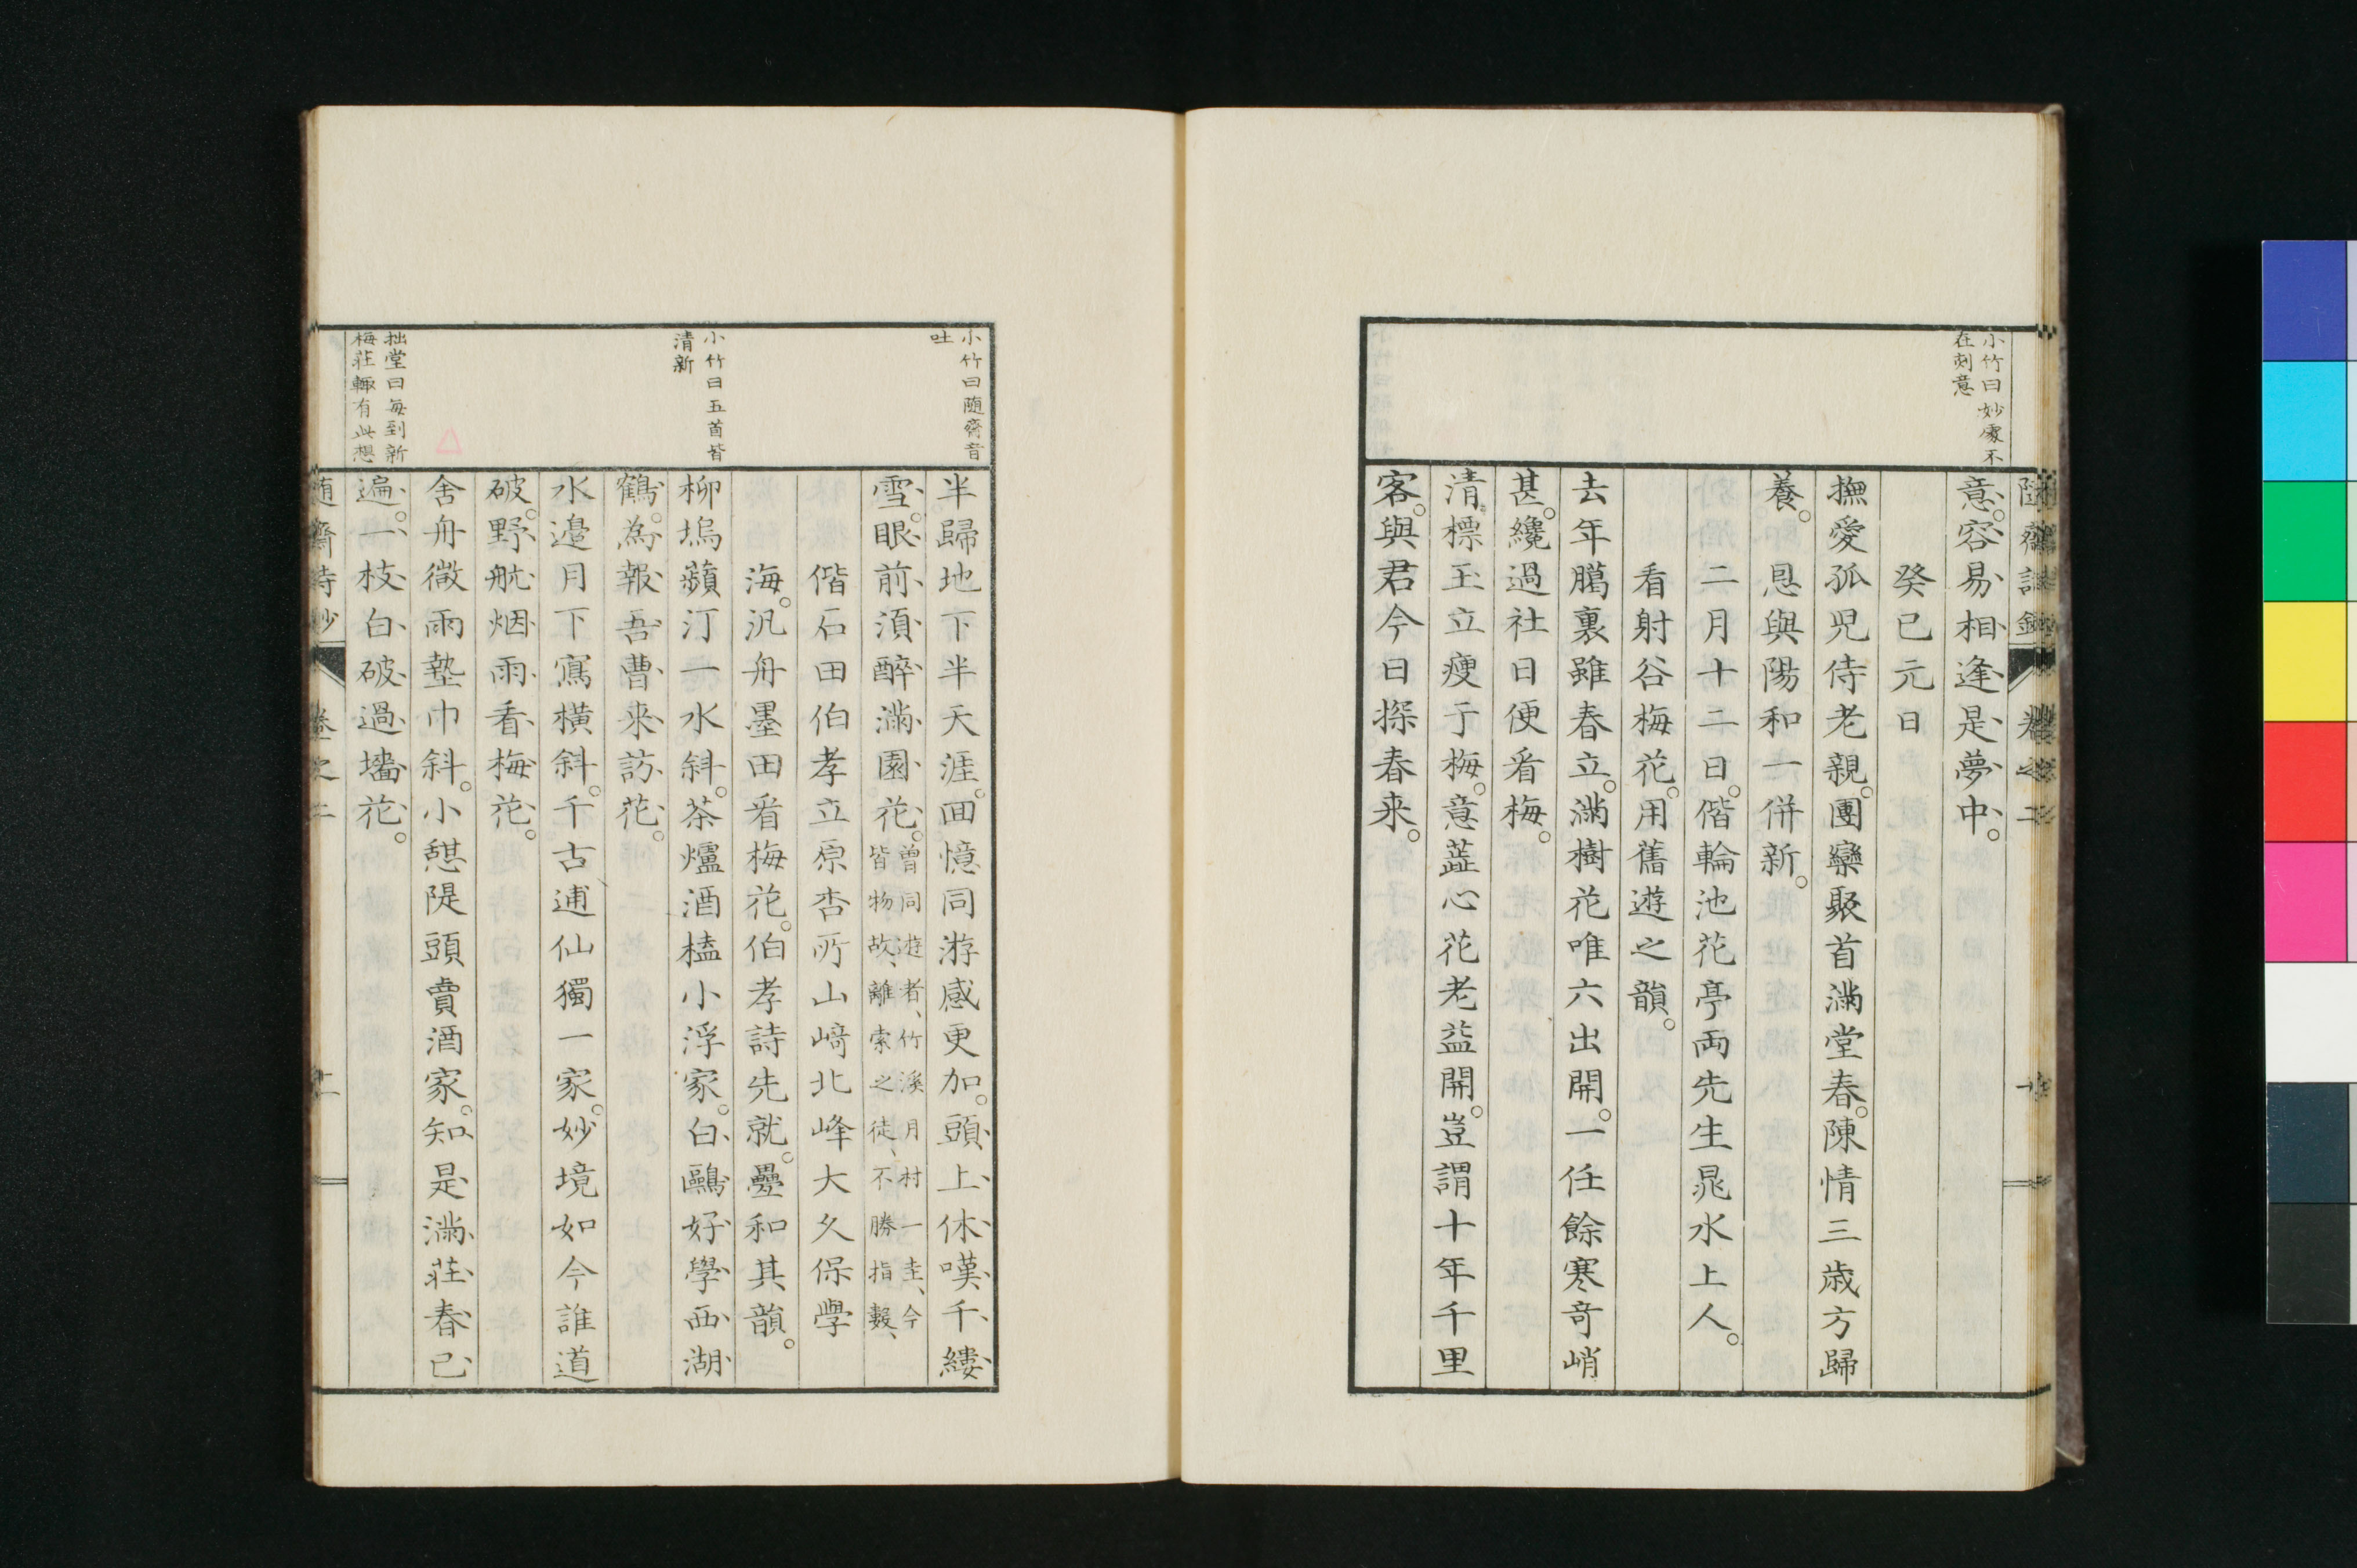 小竹曰妙處不
在刻意
意。容易相逢是夢中。
癸巳元日
撫愛孤児侍老親。團欒聚首満堂春。陳情三歳方歸
養。恩與陽和一併新。
二月十二日。偕輪池花亭両先生晁水上人。
看射谷梅花。用舊遊之韻。
去年臈裏雖春立。満樹花唯六出開。一任餘寒奇峭
甚。纔過社日便看梅。
清標玉立痩于梅。意蘂心花老益開。豈謂十年千里
客。與君今日探春来。
小竹曰随齋音
吐
半歸地下半天涯。回憶同游感更加。頭上休嘆千縷
雪。眼前須醉満園花。曽同遊者、竹溪月村一圭、今
皆物故、離索之徒、不勝指數、
偕石田伯孝立原杏所山﨑北峰大久保學
海。汎舟墨田看梅花。伯孝詩先就。疊和其韻。
小竹曰五首皆
清新
柳塢蘋汀一水斜。茶爐酒榼小浮家。白鷗好學西湖
鶴。為報吾曹来訪花。
水邉月下寫横斜。千古逋仙獨一家。妙境如今誰道
破。野航烟雨看梅花。
舎舟微雨墊巾斜。小憇隄頭賣酒家。知是満荘春已
拙堂曰毎到新
梅荘輙有此想
遍。一枝白破過墻花。
随齋詩鈔 巻之二